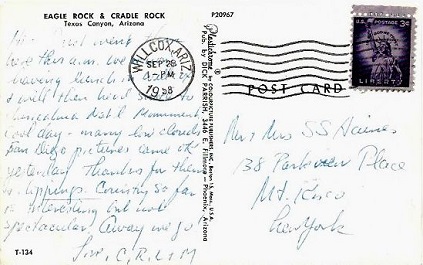 EAGLE ROCK & CRADLE ROCK
Texas Canyon, Arizona
went
here this a.m. we
having lunch in
& will then head
Monument
Cool day - many low clouds
San Diego pictures came OK
yesterday Thanks for them
& clippings. Country so far
is interesting but not
spectacular. Away we go
Love, C, R, L & M
T-134
P20967
Plastichrome ® by COLOURPICTURE PUBLISHERS, INC., Boston 15, Mass., U.S.A.
Pub. by DICK PARRISH, 3446 E. Fillmore — Phoenix, Arizona
WILLCOX, ARIZ.
SEP 28
PM
1958
POST CARD
U.S. POSTAGE 3¢
LIBERTY
Mr & Mrs S S Haines
138 Parkview Place
Mt. Kisco
New York